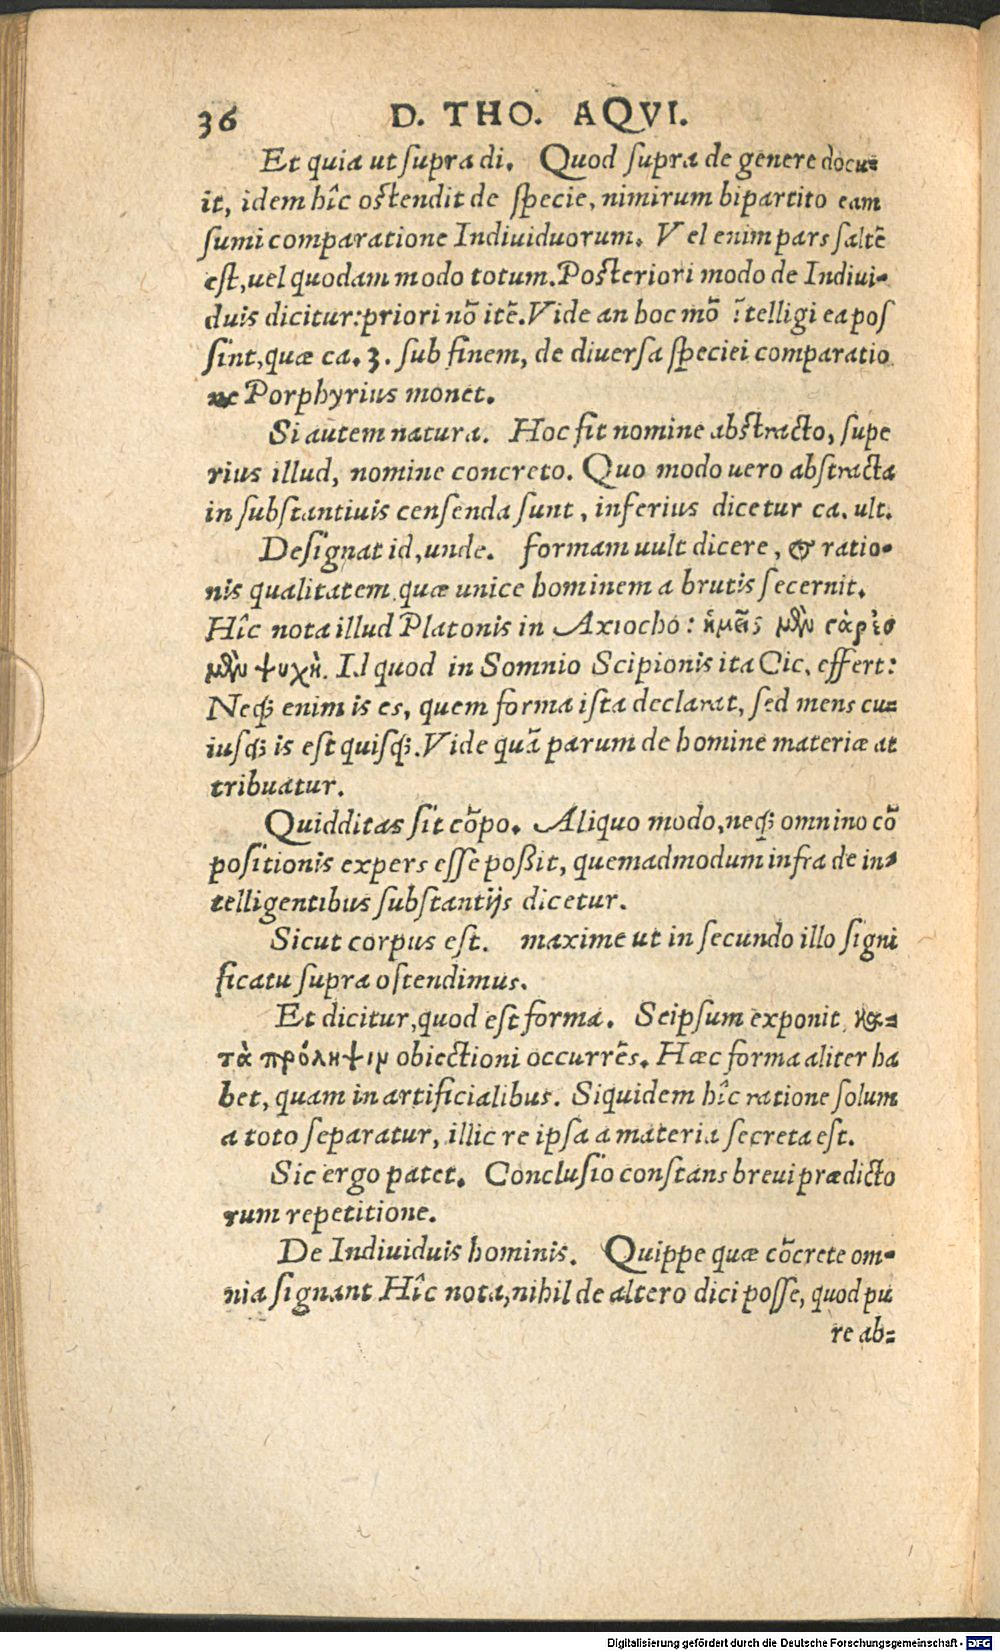 36 D. THO. AQVI.
Et quia ut supra di. Quod supra de genere docu=
it, idem hîc ostendit de specie, nimirum bipartito eam
sumi comparatione Indiuiduorum. Vel enim pars saltẽ
est, uel quodam modo totum. Posteriori modo de Indiui-
duis dicitur: priori nõ itẽ. Vide an hoc mõ ĩtelligi ea pos
sint, quæ ca. 3. sub finem, de diuersa speciei comparatio
ne Porphyrius monet.
Si autem natura. Hoc fit nomine abstracto, supe
rius illud, nomine concreto. Quo modo uero abstracta
in substantiuis censenda sunt, inferius dicetur ca. ult.
Designat id, unde. formam uult dicere, & ratio-
nis qualitatem, quæ unice hominem a brutis secernit.
Hîc nota illud Platonis in Axiocho: ἡμεῖς μὲν ἐσμὲν
ψυχὴ. Id quod in Somnio Scipionis ita Cic. effert:
Neq; enim is es, quem forma ista declarat, sed mens cu=
iusq; is est quisq;. Vide quã parum de homine materiæ at
tribuatur.
Quidditas sit cõpo. Aliquo modo, neq; omnino cõ
positionis expers esse poßit, quemadmodum infra de in-
telligentibus substantijs dicetur.
Sicut corpus est. maxime ut in secundo illo signi
ficatu supra ostendimus.
Et dicitur, quod est forma. Seipsum exponit, κα=
τὰ πρόληψιν obiectioni occurrẽs. Hæc forma aliter ha
bet, quam in artificialibus. Siquidem hîc ratione solum
a toto separatur, illic re ipsa a materia secreta est.
Sic ergo patet. Conclusio constans breui prædicto
rum repetitione.
De Indiuiduis hominis. Quippe quæ cõcrete om-
nia signant Hîc nota, nihil de altero dici posse, quod pu
re ab=
Digitalisierung gefördert durch die Deutsche Forschungsgemeinschaft - DFG